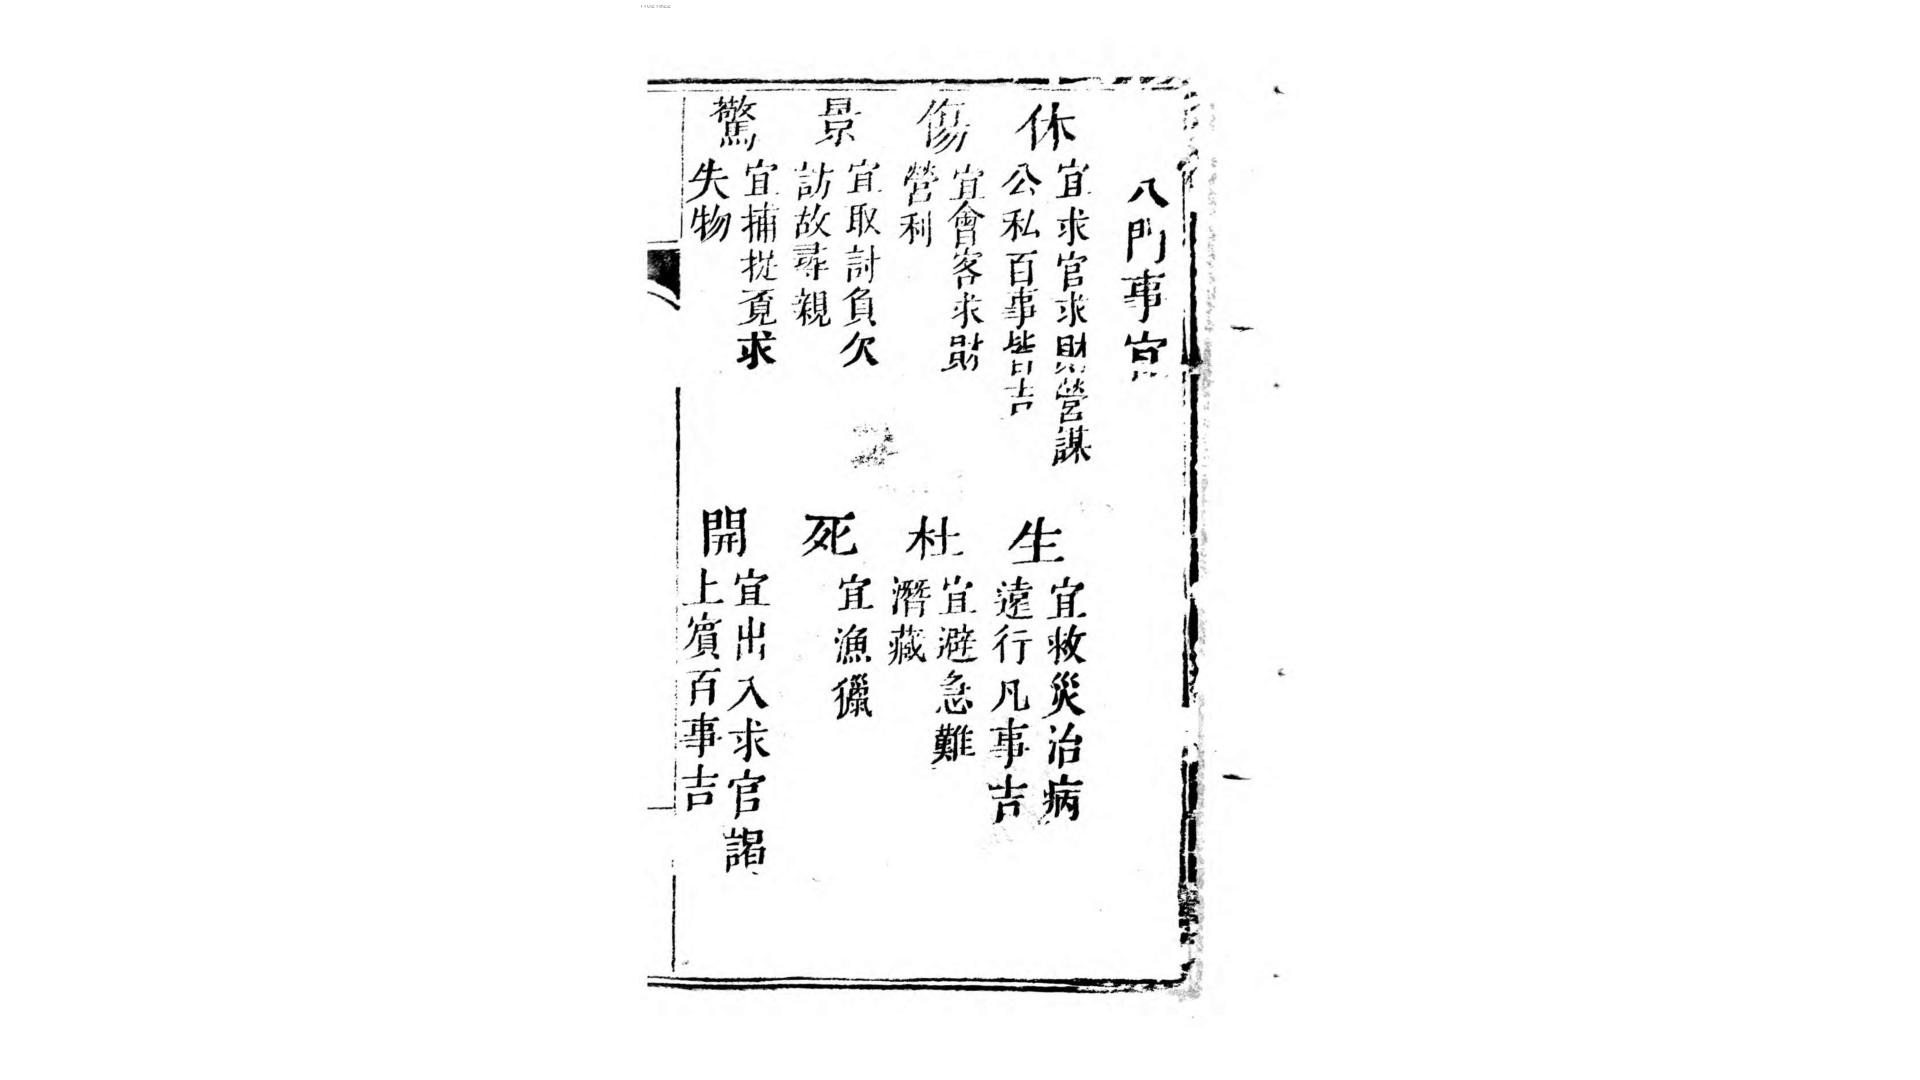 八門事宜
休
宜求官求財營謀
公私百事皆吉
生
宜救災治病
遠行凡事吉
傷
宜會客求財
營利
杜
宜避急難
潛藏
景
宜取討負欠
訪故尋親
死
宜漁獵
驚
宜捕捉覔求
失物
開
宜出入求官謁
上賓百事吉